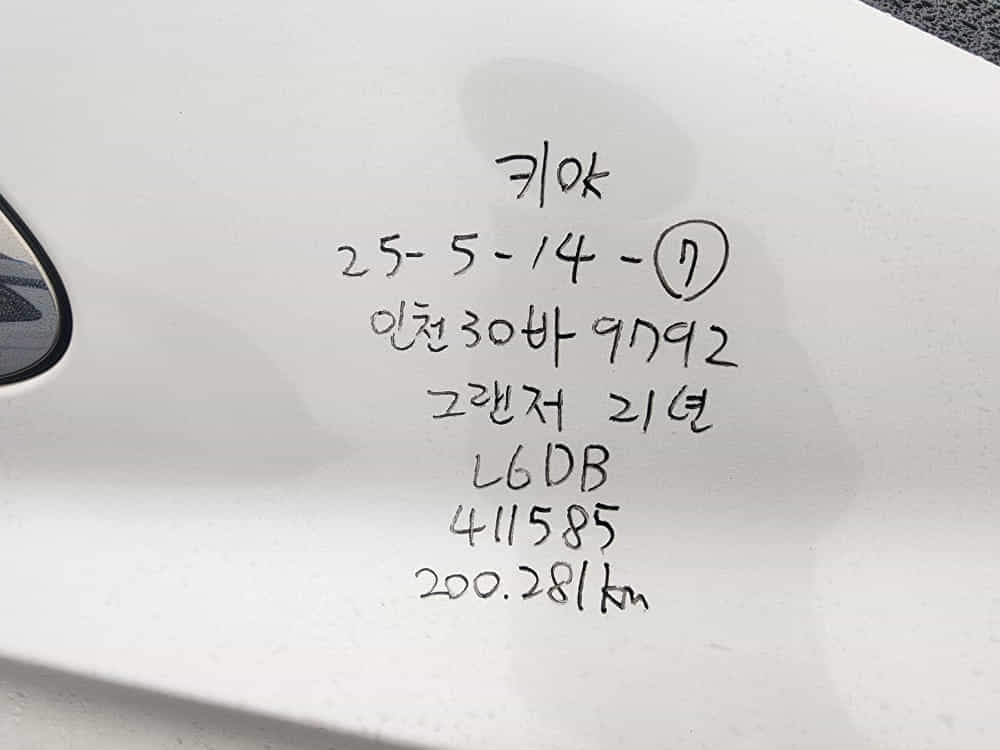 키 O k
25-5-14-⑦
인천30바9792
그랜저 21년
L6DB
411585
200.281km